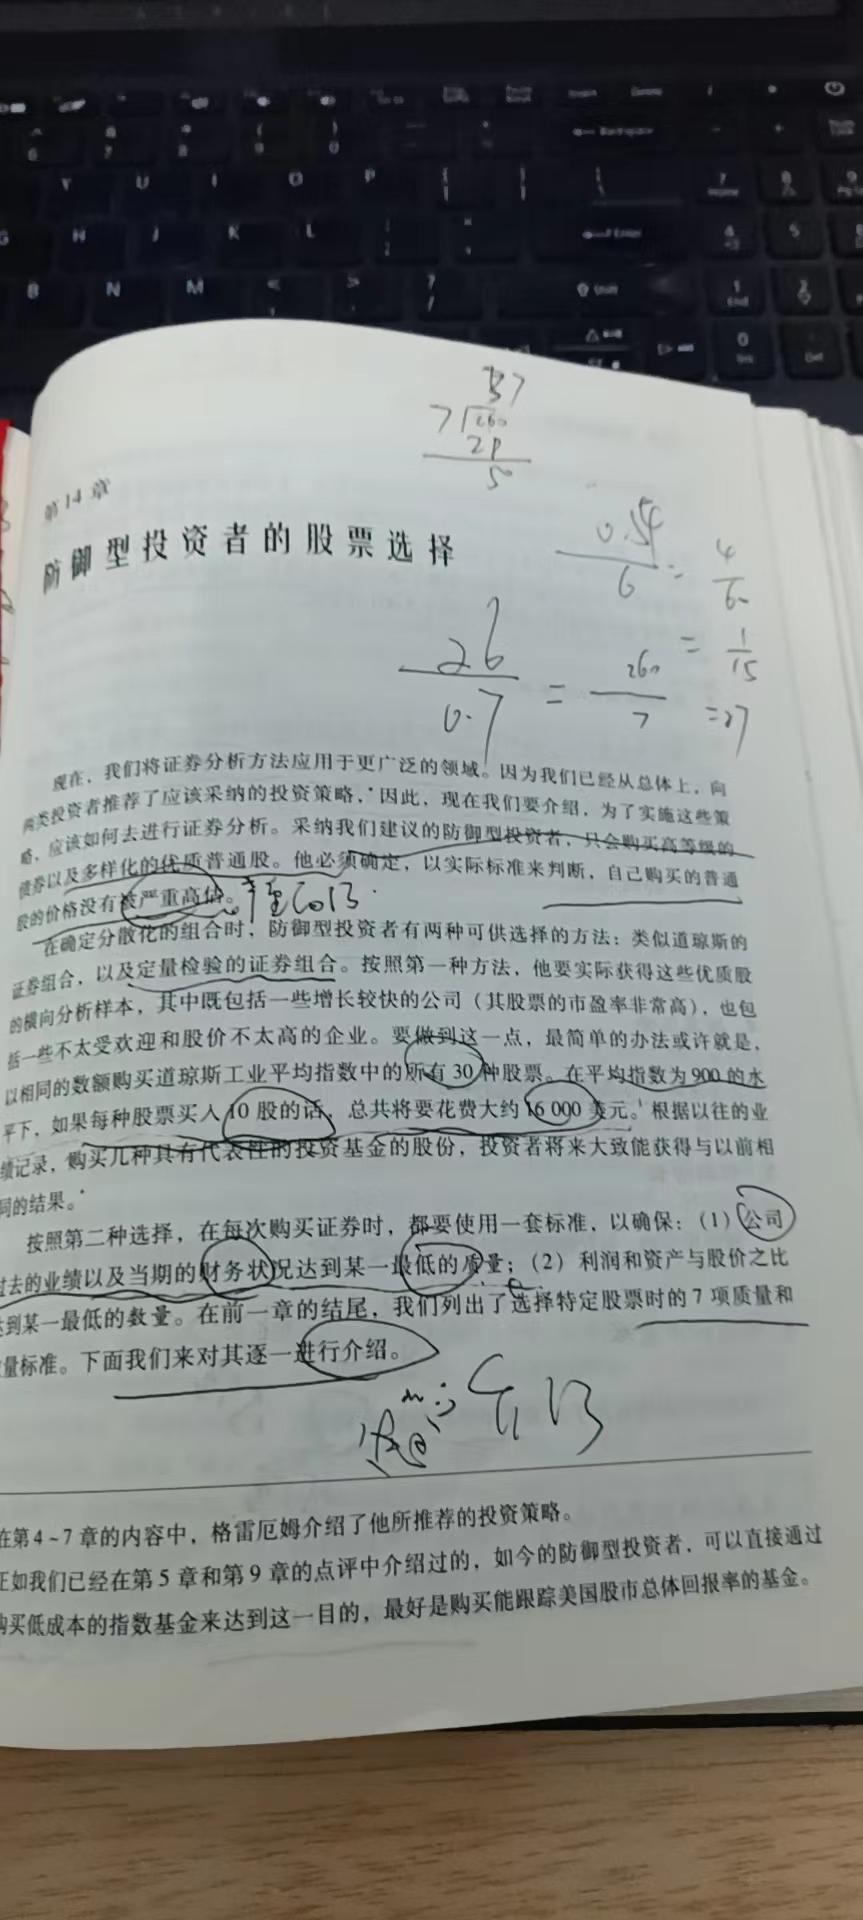 第14章
防御型投资者的股票选择
7 260
5
0.54
6
=
4
60
=
1
15
26
0.7
=
260
7
=27
现在，我们将证券分析方法应用于更广泛的领域。因为我们已经从总体上，向
两类投资者推荐了应该采纳的投资策略，*因此，现在我们要介绍，为了实施这些策
略，应该如何去进行证券分析。采纳我们建议的防御型投资者，只会购买高等级的
债券以及多样化的优质普通股。他必须确定，以实际标准来判断，自己购买的普通
股的价格没有被严重高估。
在确定分散化的组合时，防御型投资者有两种可供选择的方法：类似道琼斯的
证券组合，以及定量检验的证券组合。按照第一种方法，他要实际获得这些优质股
的横向分析样本，其中既包括一些增长较快的公司（其股票的市盈率非常高），也包
括一些不太受欢迎和股价不太高的企业。要做到这一点，最简单的办法或许就是，
以相同的数额购买道琼斯工业平均指数中的所有30种股票。在平均指数为900的水
平下，如果每种股票买入10股的话，总共将要花费大约16 000美元。¹根据以往的业
绩记录，购买几种具有代表性的投资基金的股份，投资者将来大致能获得与以前相
同的结果。*
按照第二种选择，在每次购买证券时，都要使用一套标准，以确保：(1) 公司
过去的业绩以及当期的财务状况达到某一最低的质量；(2) 利润和资产与股价之比
达到某一最低的数量。在前一章的结尾，我们列出了选择特定股票时的7项质量和
量标准。下面我们来对其逐一进行介绍。
在第4~7章的内容中，格雷厄姆介绍了他所推荐的投资策略。
正如我们已经在第5章和第9章的点评中介绍过的，如今的防御型投资者，可以直接通过
购买低成本的指数基金来达到这一目的，最好是购买能跟踪美国股市总体回报率的基金。